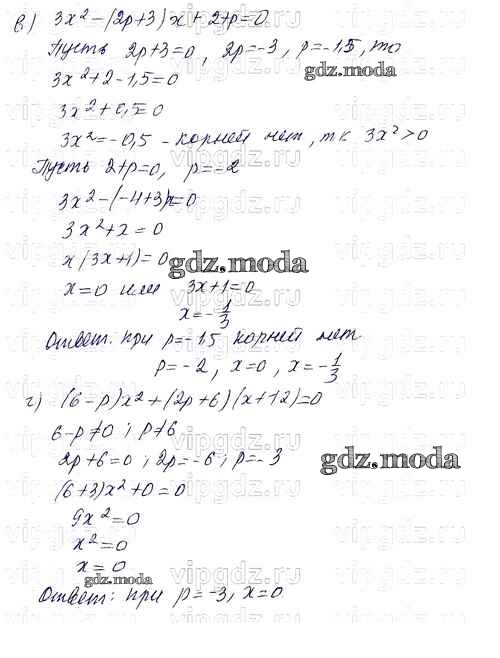 в) 3x² - (2p+3)x + 2+p = 0
Пусть 2p+3=0, 2p=-3, p=-1,5, то
gdz.moda
3x²+2-1,5=0
3x²+0,5=0
3x²=-0,5 - корней нет, т.к 3x²>0
Пусть 2+p=0, p=-2
3x²-(-4+3)x=0
3x²+x=0
x(3x+1)=0
gdz.moda
x=0 или 3x+1=0
x=-1/3
Ответ: при p=-1,5 корней нет
p=-2, x=0, x=-1/3
г) (6-p)x²+(2p+6)(x+12)=0
6-p≠0; p≠6
2p+6=0; 2p=-6; p=-3
gdz.moda
(6+3)x²+0=0
9x²=0
x²=0
x=0
gdz.moda
Ответ: при p=-3, x=0
vipgdz.ru